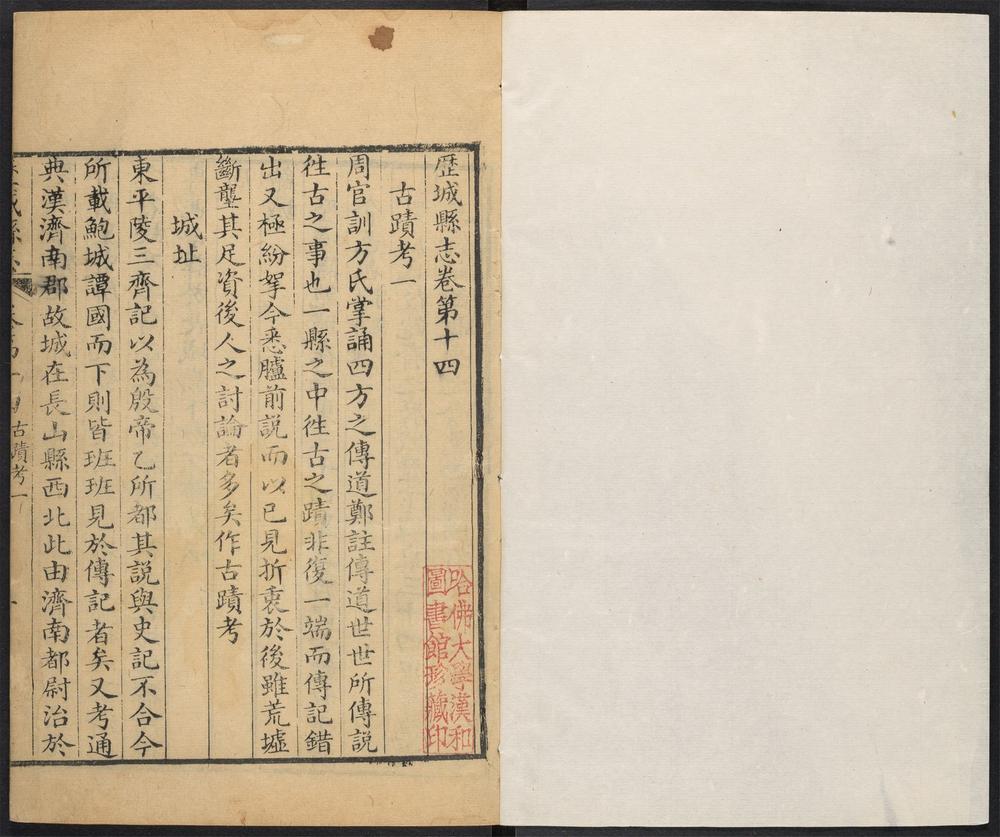 歴城縣志卷第十四
古蹟考一
周官訓方氏掌誦四方之傳道鄭註傳道世世所傳説
徃古之事也一縣之中徃古之蹟非復一端而傳記錯
出又極紛挐今悉臚前説而以已見折衷於後雖荒墟
斷壟其足資後人之討論者多矣作古蹟考
城址
東平陵三齊記以為殷帝乙所都其説與史記不合今
所載鮑城譚國而下則皆班班見於傳記者矣又考通
典漢濟南郡故城在長山縣西北此由濟南都尉治於
古蹟考一
哈佛大學漢和
圖書館珍藏印